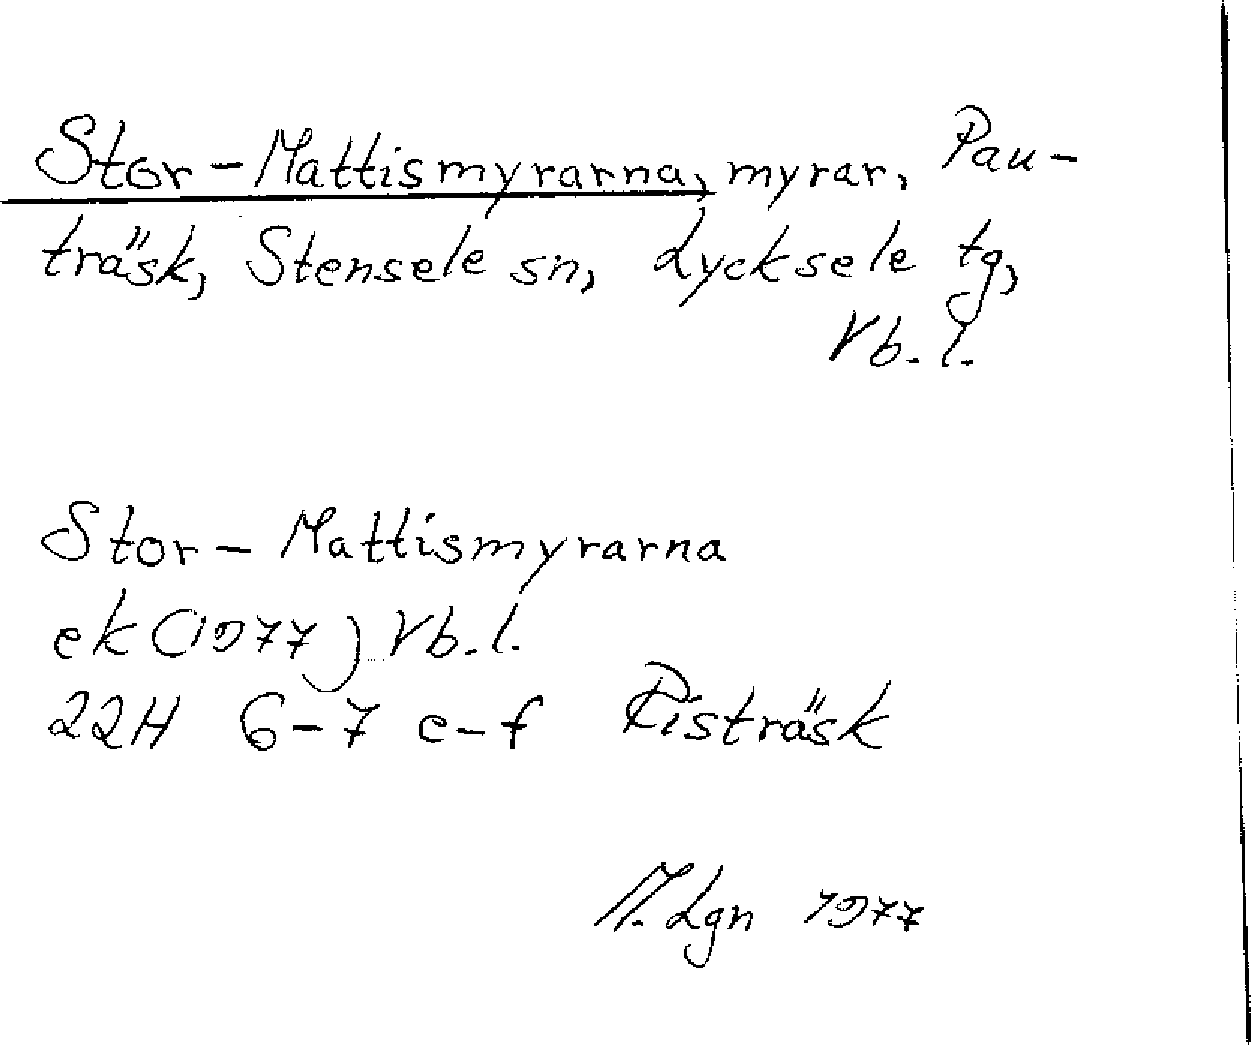 Stor-Mattismyrarna, myrar, Pau-
träsk, Stensele sn, Lycksele tg,
Vb. l.
Stor-Mattismyrarna
ek (1977) Vb. l.
22H 6-7 e-f Risträsk
M. Lgn 1977